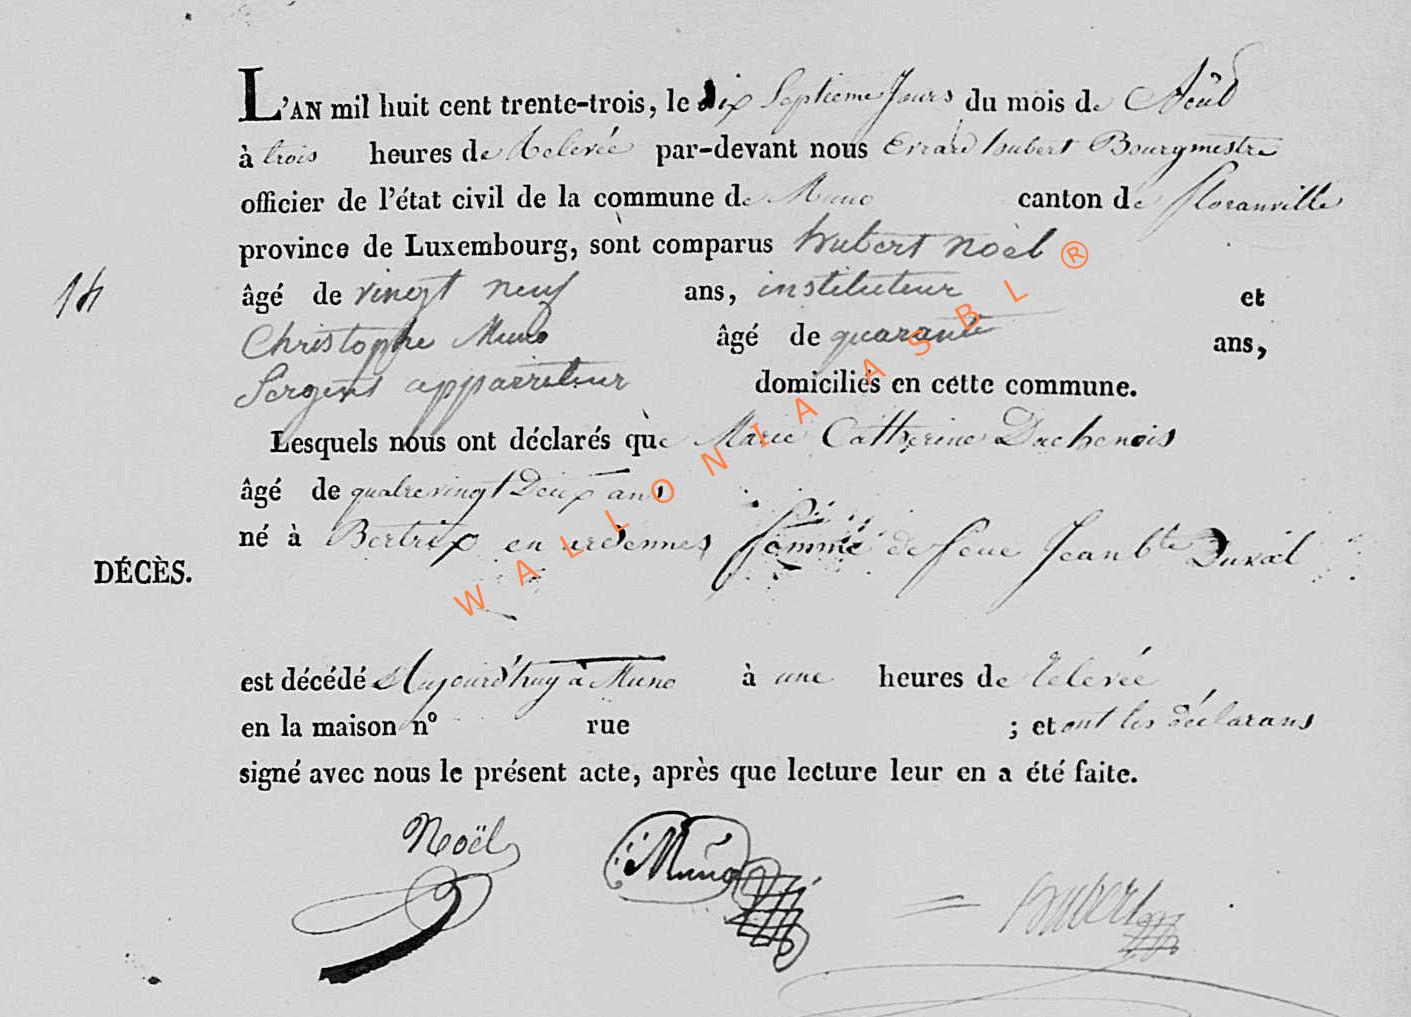 L'AN mil huit cent trente-trois, le dix Septieme Jours du mois de Aout
à trois heures de Relevée par-devant nous Errard hubert Bourgmestre
officier de l'état civil de la commune de Muno canton de floranville
province de Luxembourg, sont comparus hubert noèl
14 âgé de vingt neuf ans, instituteur et
Christophe Muno âgé de quarante ans,
Sergent apparriteur domiciliés en cette commune.
Lesquels nous ont déclarés que Marie Catherine Duchenois
âgé de quatrevingt Deux ans
né à Bertrix en ardennes femme de feue Jean bte Duval
DÉCÈS.
est décédé Aujourd'huy à Muno à une heures de Relevée
en la maison nº rue ; et ont les déclarans
signé avec nous le présent acte, après que lecture leur en a été faite.
Noël Muno hubert
WALLONIA ASBL ®